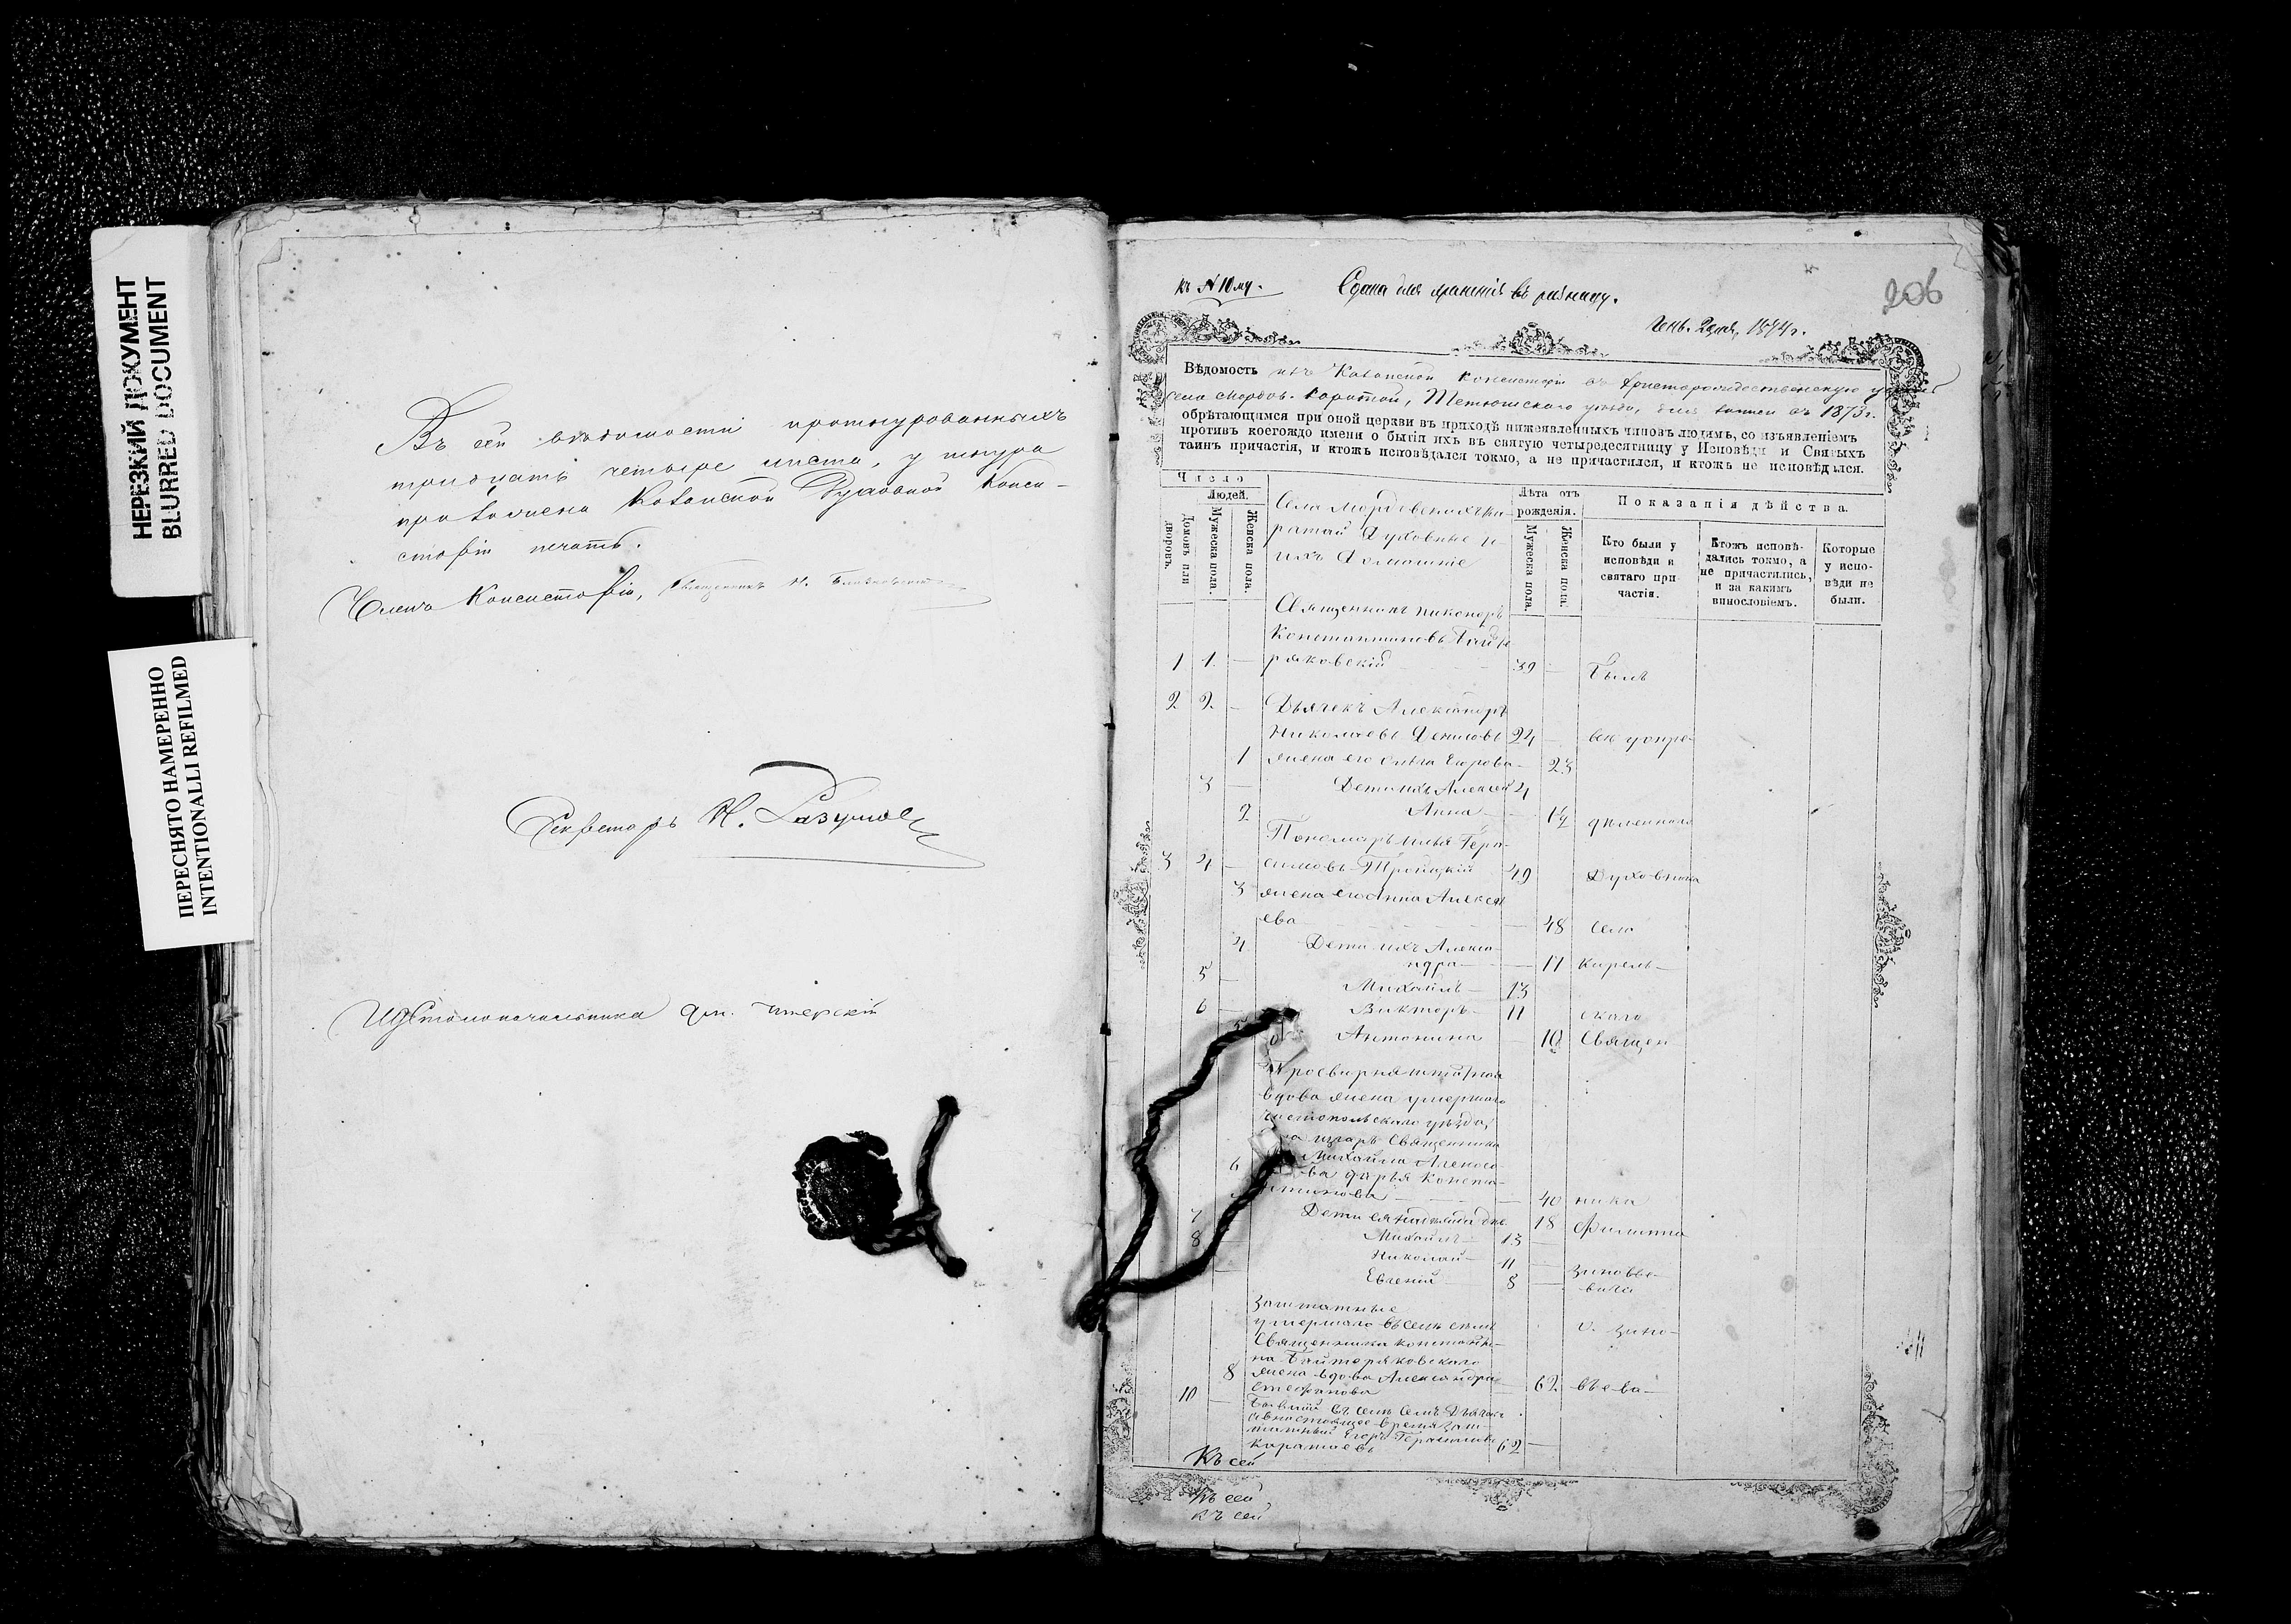 НЕРЕЗКИЙ ДОКУМЕНТ
BLURRED DOCUMENT
ПЕРЕСНЯТО НАМЕРЕННО
INTENTIONALLI REFILMED
Въ сей вѣдомости прошнурованныхъ
тридцать четыре листа, у шнура
приложена Казанской Духовной Конси-
сторіи печать.
Членъ Консисторіи, Священникъ Н.
Секретарь Н. Разумов
къ № 10му.
Сдана для храненія въ ризницу.
206
Генв. 2 дня, 1874 г.
Вѣдомость изъ Казанской Консисторіи въ Христорождественскую церковь
села Мордов. Каратай, Тетюшскаго уѣзда, для записи въ 1873 г.
обрѣтающимся при оной церкви въ приходѣ нижеявленныхъ чиновъ людямъ, со изъявленіемъ
противъ коегождо имени о бытіи ихъ въ святую четыредесятницу у Исповѣди и Святыхъ
таинъ причастія, и ктожъ исповѣдался токмо, а не причастился, и ктожъ не исповѣдался.
Число
Людей.
Домовъ или дворовъ.
Мужеска пола.
Женска пола.
Села Мордовскихъ Ка-
ратай Духовные и
ихъ Домашніе
Лѣта отъ рожденія.
Мужеска пола.
Женска пола.
Показанія дѣйства.
Кто были у исповѣди и святаго причастія.
Ктожъ исповѣдались токмо, а не причастились, и за какимъ винословіемъ.
Которые у исповѣди не были.
Священникъ Никаноръ
Константиновъ Байте
1 1 — ряковскій 39 — былъ
2 2 — Дьячекъ Александръ
Николаевъ Денисовъ 24 — въ
1 жена его Ольга Егорова — 23
3 — Дети ихъ Алексѣй 4
2 Анна —
Пономарь Илья Гера-
3 4 — симовъ Троицкій 49 Духовника
3 жена его Анна Алексѣ
ева — 48 села
4 Дети ихъ Алекса-
ндра — 17 Кирель-
5 — Михаилъ — 13
6 — Викторъ — 11 скаго
5 Антонина — 10 Священ
Просвирня штатная
вдова жена умершаго
Чистопольскаго уѣзда,
Священника
6 Михаила Алексѣе-
ва Дарья Конста-
нтинова — 40 ника
Дети ея 18 Филиппа
7 Михаилъ — 13 —
8 Николай — 11 — Зиновье-
Евгеній 8 — вича
Заштатные
умершаго въ семъ селѣ
Священника Константи-
на Байтеряковскаго
8 жена вдова Александра
Стефанова — 62 вьева
о. Зино-
10 — Бывшій въ семъ селѣ Дьячекъ
а въ настоящее время заш-
татный Егоръ Герасимовъ
Каратаевъ 62 —
Къ сей
Къ сей
Къ сей